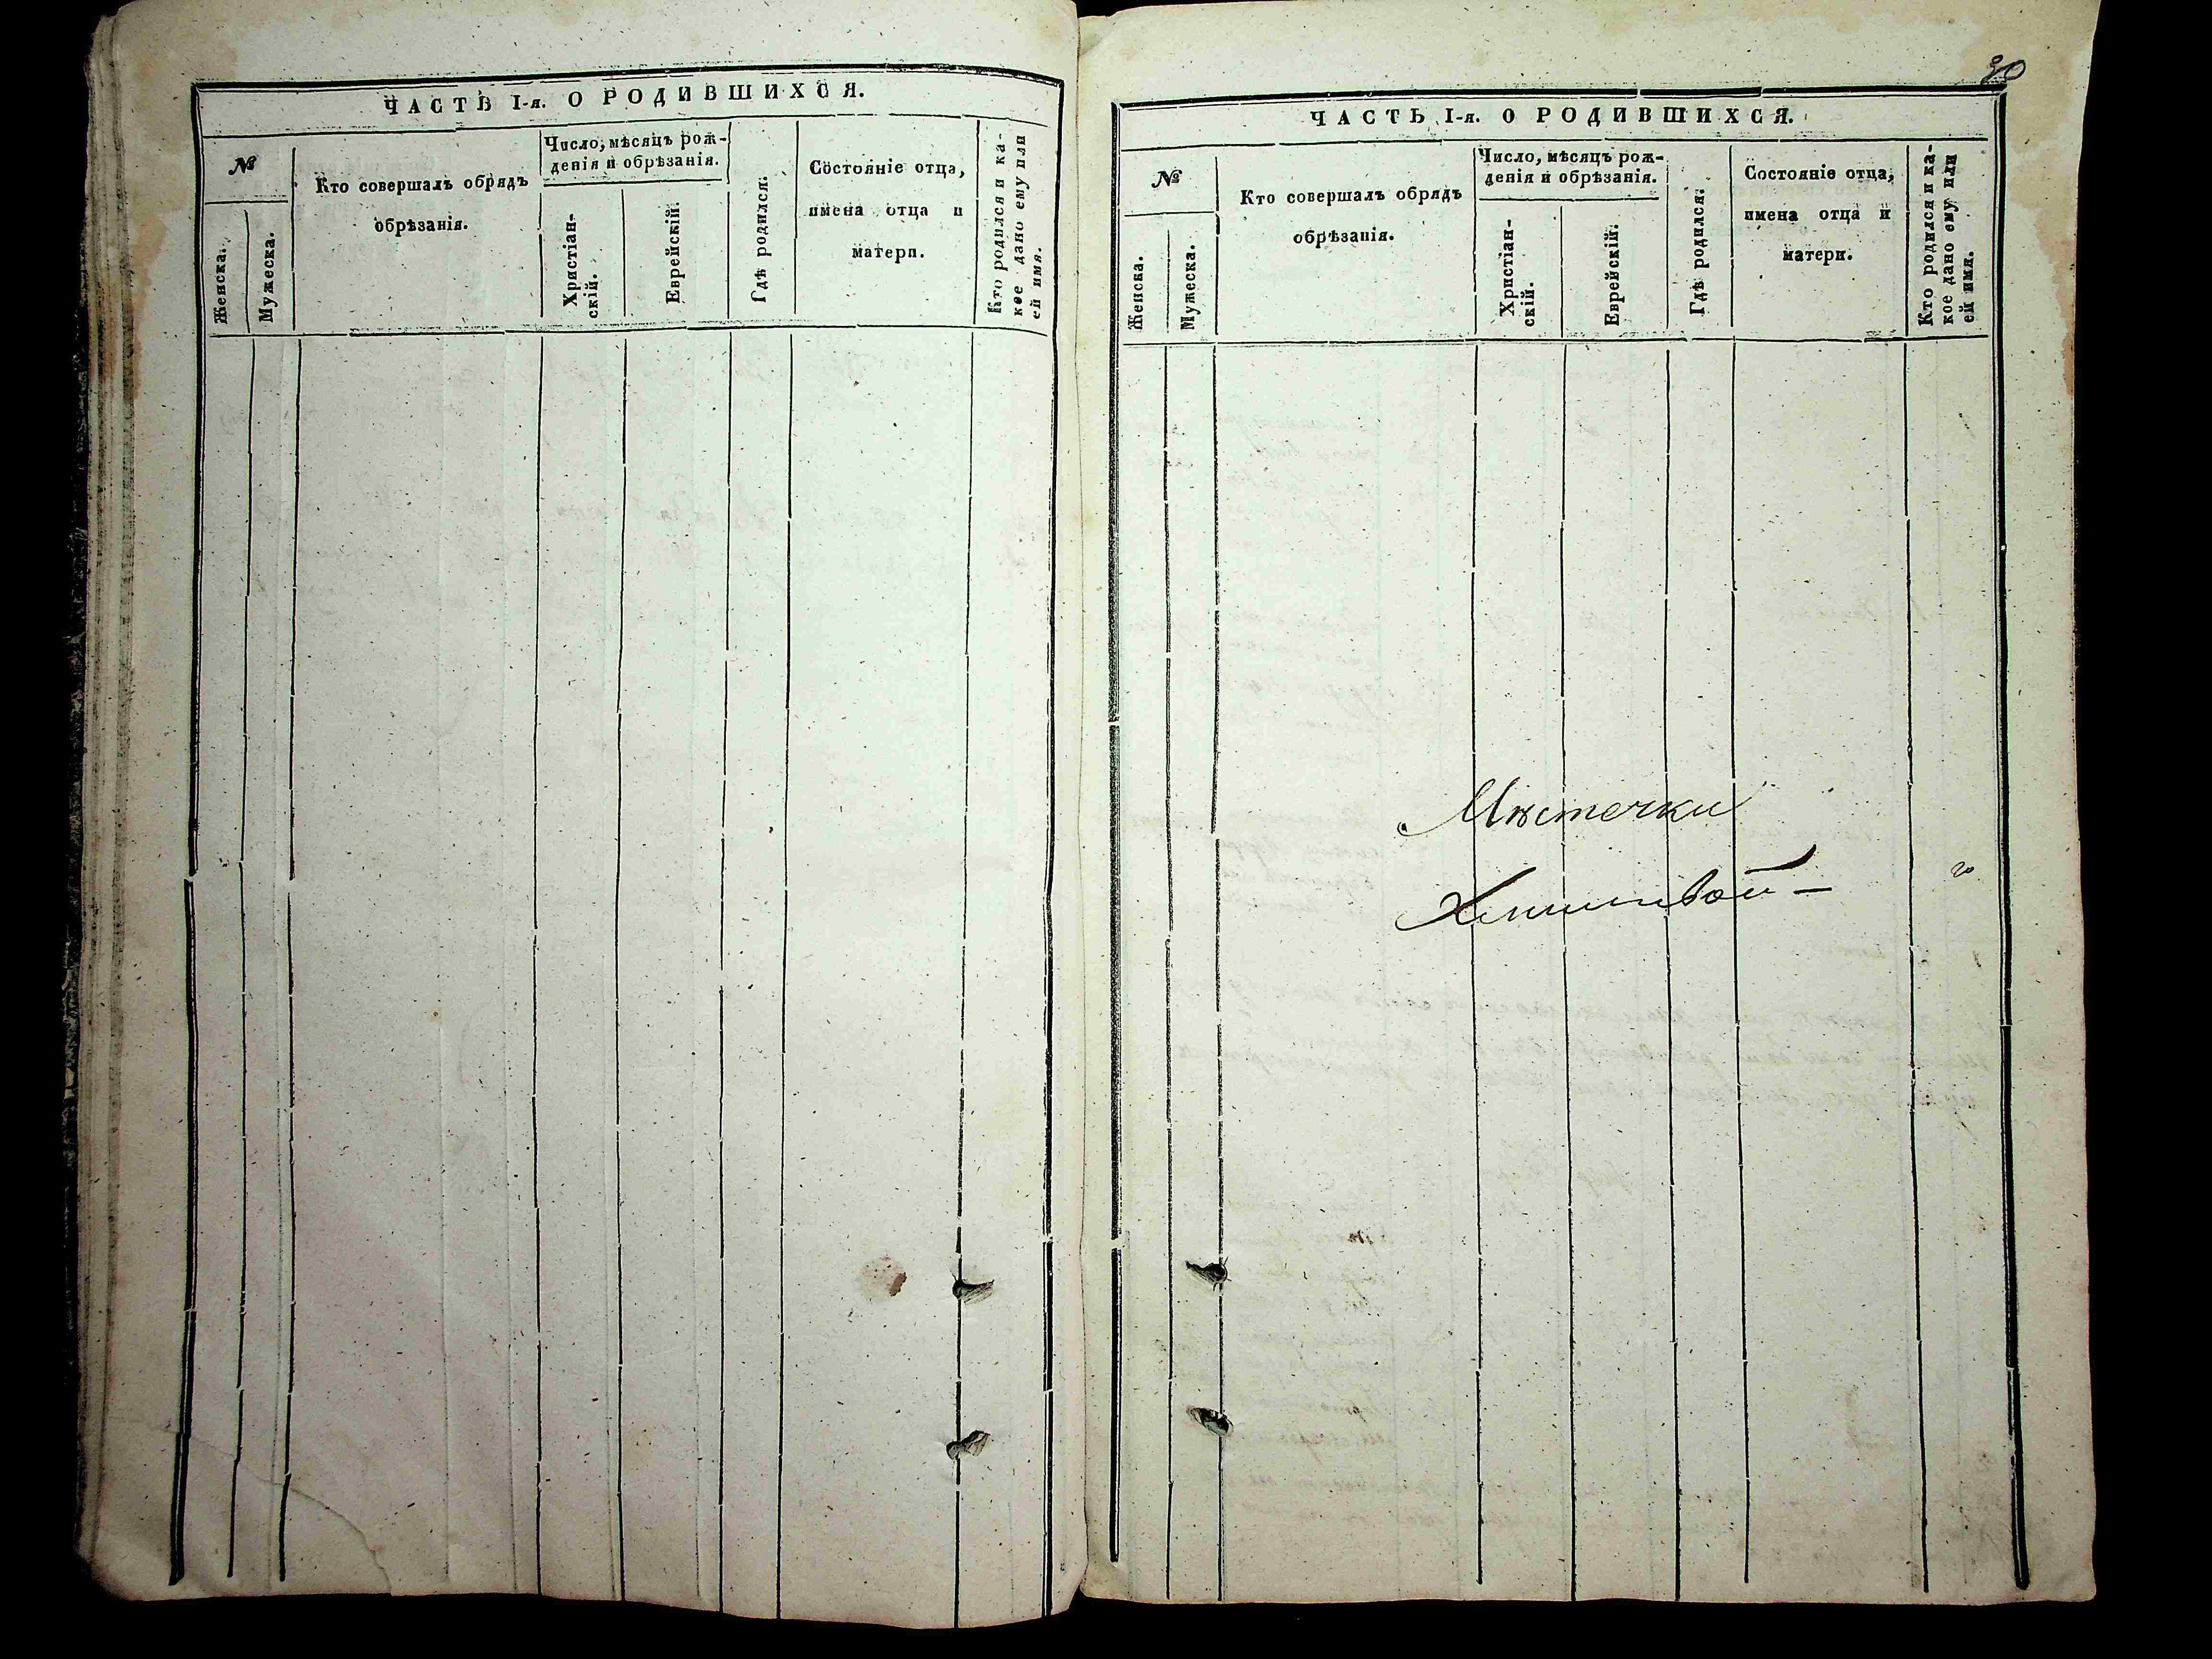 ЧАСТЬ I-я. О РОДИВШИХСЯ.
№
Женска.
Мужеска.
Кто совершалъ обрядъ
обрѣзанія.
Число, мѣсяцъ рож-
денія и обрѣзанія.
Христіан-
скій.
Еврейскій.
Гдѣ родился.
Состояніе отца,
имена отца и
матери.
Кто родился и ка-
кое дано ему или
ей имя.
30
ЧАСТЬ I-я. О РОДИВШИХСЯ.
№
Женска.
Мужеска.
Кто совершалъ обрядъ
обрѣзанія.
Число, мѣсяцъ рож-
денія и обрѣзанія.
Христіан-
скій.
Еврейскій.
Гдѣ родился.
Состояніе отца,
имена отца и
матери.
Кто родился и ка-
кое дано ему или
ей имя.
Мѣстечки